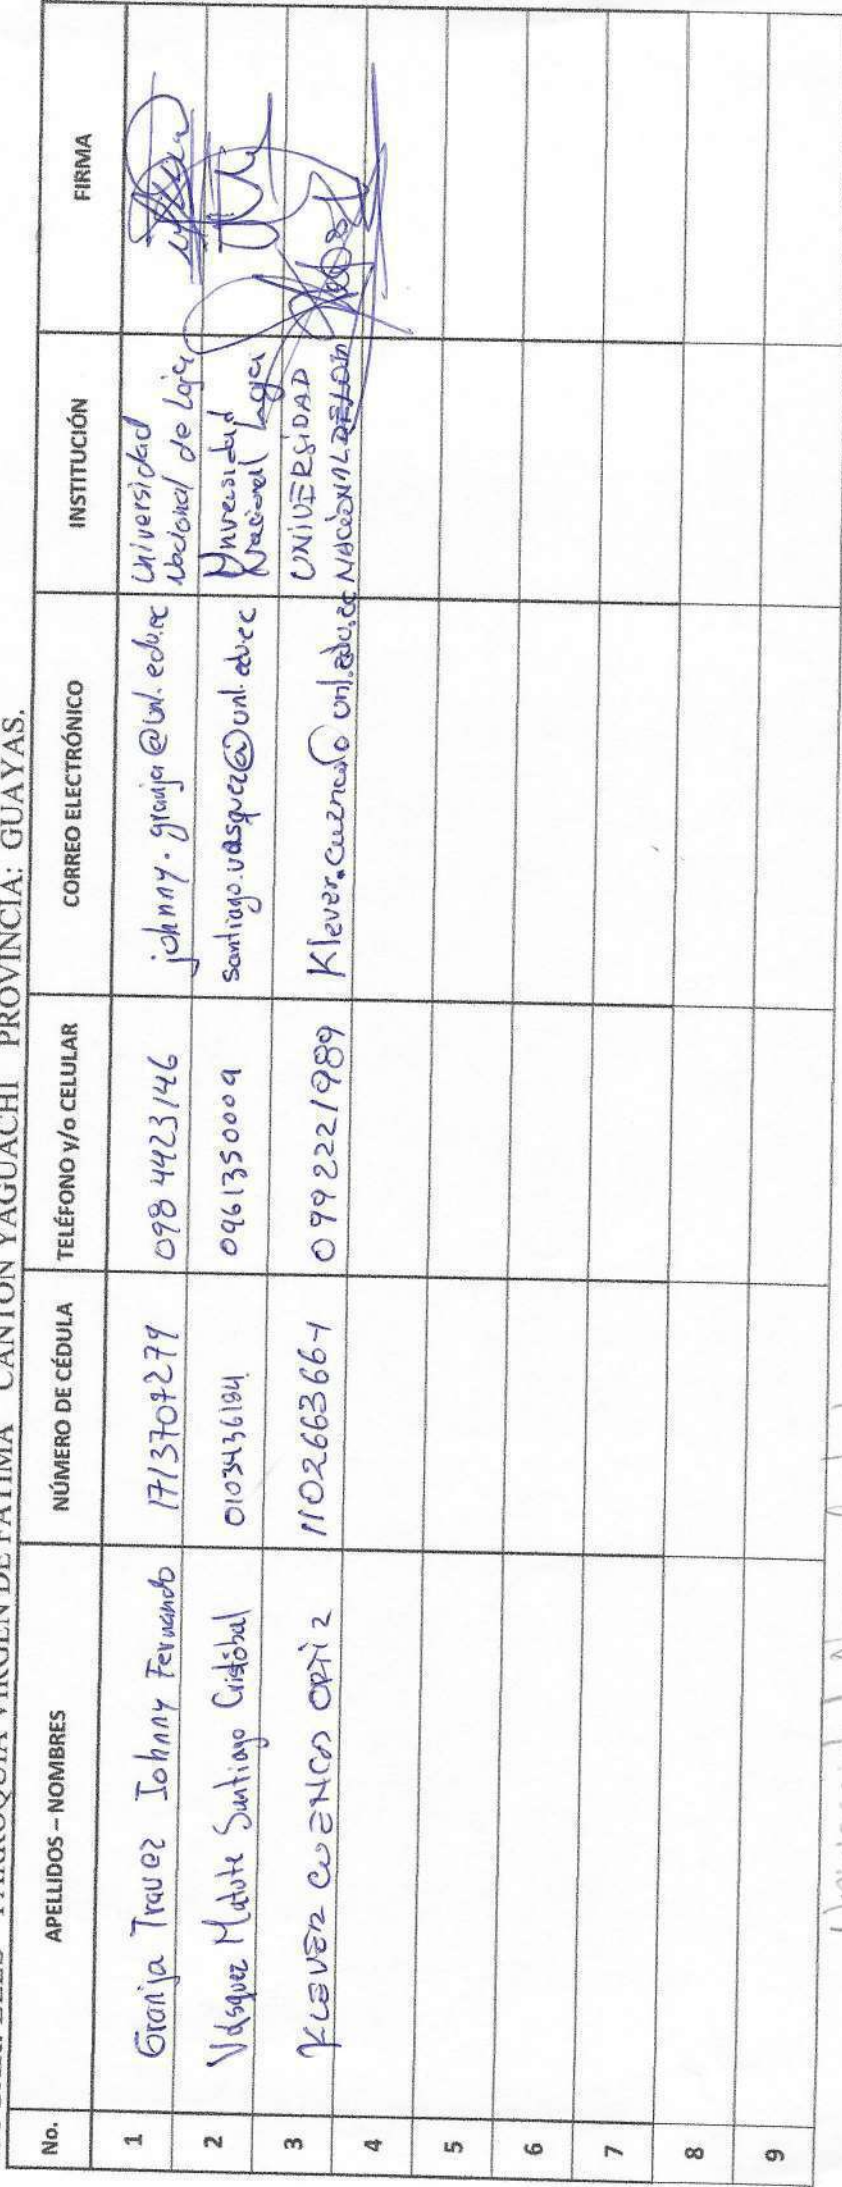 PARROQUIA VIRGEN DE FATIMA CANTON YAGUACHI PROVINCIA: GUAYAS.
No. APELLIDOS – NOMBRES NÚMERO DE CÉDULA TELÉFONO y/o CELULAR CORREO ELECTRÓNICO INSTITUCIÓN FIRMA
1 Granja Travez Johnny Fernando 1713707279 098 4423146 johnny.granja@unl.edu.ec Universidad
Nacional de Loja
2 Vásquez Matute Santiago Cristóbal 0103436184 0961350009 santiago.vasquez@unl.edu.ec Universidad
Nacional Loja
3 KLEVER CUENCA ORTIZ 1102663664 0992221989 Klever.cuenca@unl.edu.ec UNIVERSIDAD
NACIONAL DE LOJA
4
5
6
7
8
9